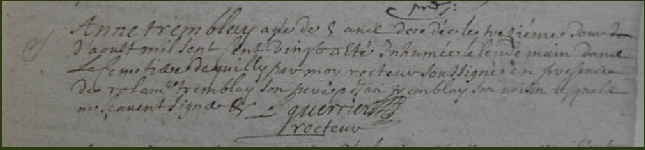 Anne tremblay agée de 5 ans decedée le treziéme Jour
D'aoust mil sept cent vingt a Eté Inhumée Le lendemain dans
Le Cimetiere de quilly par moy recteur soussigné en presence
De rolan tremblay son pere et jan tremblay son voisin Lesquels
ne scavent signer &
guerrier
recteur